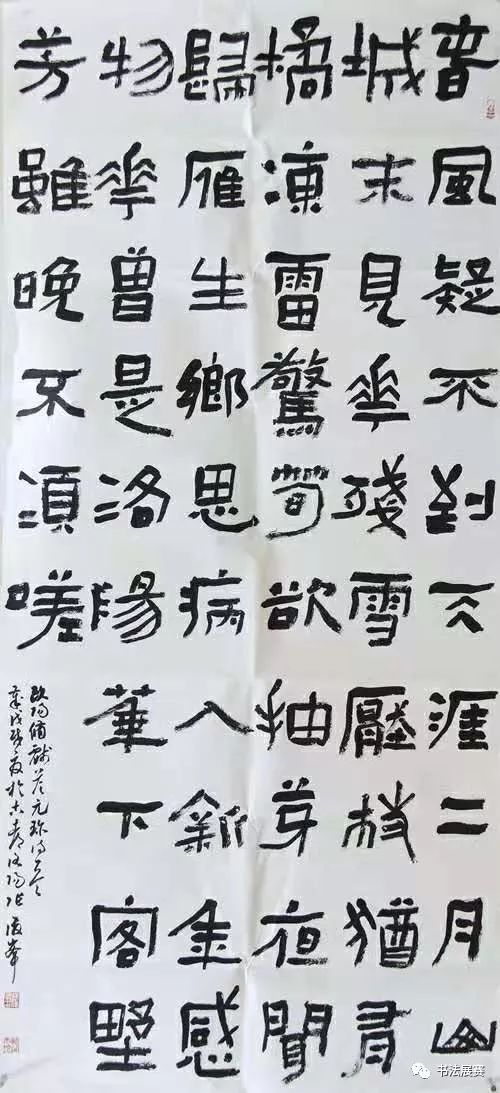 春風疑不到天涯二月山
城未見華殘雪壓枝猶有
橘凍雷驚筍欲抽芽夜聞
歸雁生鄉思病入新年感
物華曾是洛陽華下客野
芳雖晚不須嗟
歐陽脩戲答元珍詩
於古都洛陽
书法展赛